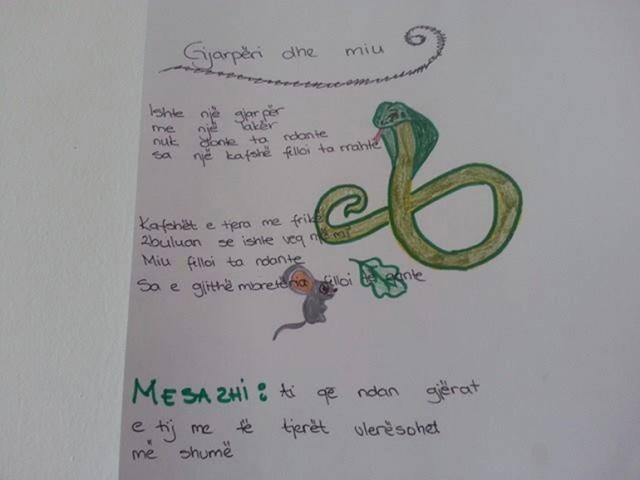 Gjarpëri dhe miu
Ishte një gjarpër
me një lakër
nuk donte ta ndante
sa një kafshë filloi ta mahte
Kafshët e tjera me frikë
zbuluan se ishte veq një mi
Miu filloi ta ndante
Sa e gjithë mbretëria filloi të
MESAZHI: ti qe ndan gjërat
e tij me të tjerët vlerësohet
më shumë